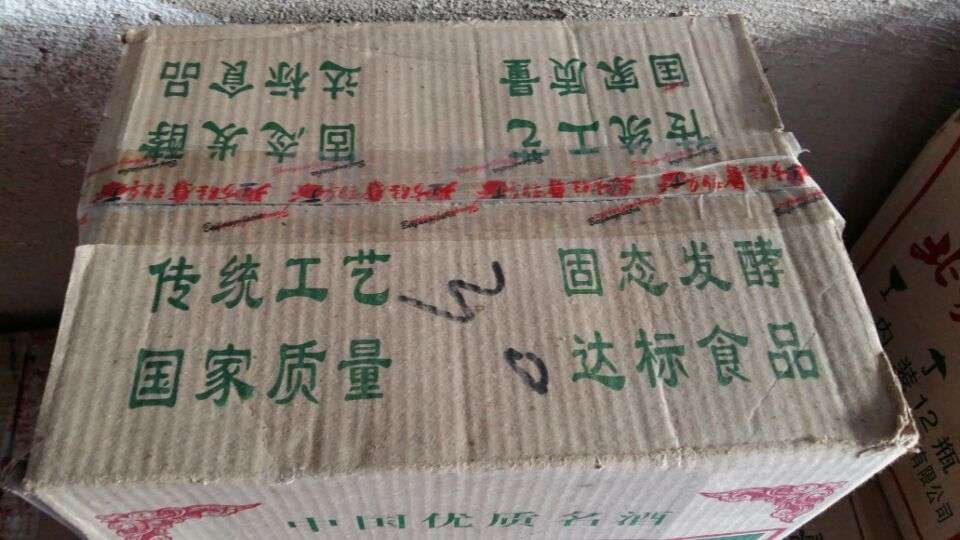 国家质量 达标食品
传统工艺 固态发酵
传统工艺 固态发酵
国家质量 达标食品
中国优质名酒
内装12瓶
有限公司